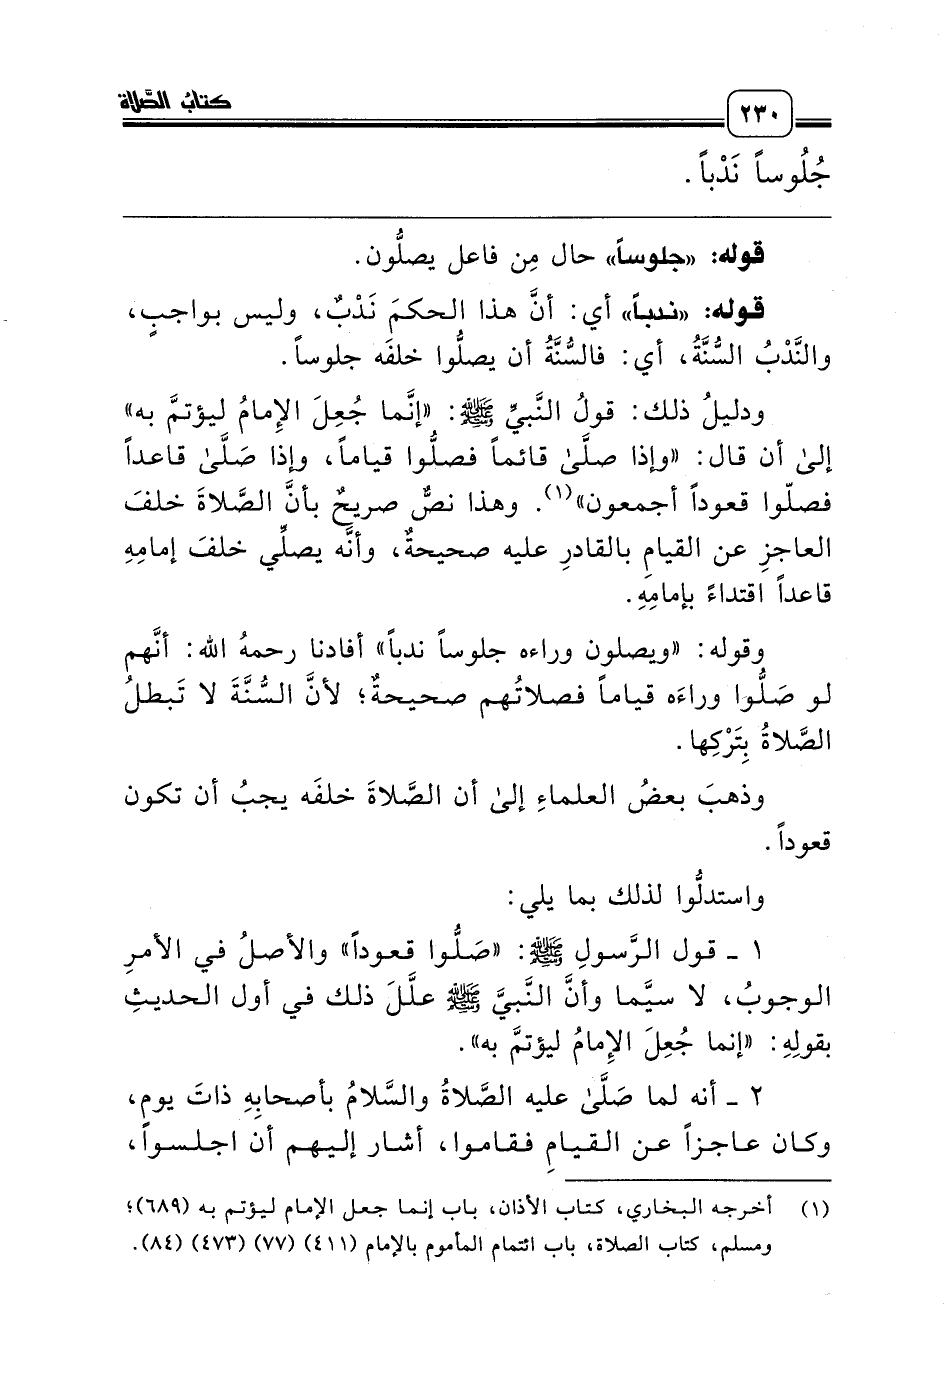 كتاب الصَّلاة
٢٣٠
جُلُوساً نَدْباً .
قوله: «جلوساً» حال مِن فاعل يصلُّون .
قوله: «ندباً» أي: أنَّ هذا الحكمَ نَدْبٌ، وليس بواجبٍ،
والنَّدْبُ السُّنَّةُ، أي: فالسُّنَّةُ أن يصلُّوا خلفَه جلوساً .
ودليلُ ذلك: قولُ النَّبيِّ ﷺ: «إنَّما جُعِلَ الإمامُ ليؤتمَّ به»
إلىٰ أن قال: «وإذا صلَّىٰ قائماً فصلُّوا قياماً، وإذا صَلَّىٰ قاعداً
فصلّوا قعوداً أجمعون»(١). وهذا نصٌّ صريحٌ بأنَّ الصَّلاةَ خلفَ
العاجزِ عن القيامِ بالقادرِ عليه صحيحةٌ، وأنَّه يصلِّي خلفَ إمامِهِ
قاعداً اقتداءً بإمامِهِ .
وقوله: «ويصلون وراءه جلوساً ندباً» أفادنا رحمهُ الله: أنَّهم
لو صَلُّوا وراءَه قياماً فصلاتُهم صحيحةٌ؛ لأنَّ السُّنَّةَ لا تَبطلُ
الصَّلاةُ بِتَرْكِها .
وذهبَ بعضُ العلماءِ إلىٰ أن الصَّلاةَ خلفَه يجبُ أن تكون
قعوداً .
واستدلُّوا لذلك بما يلي:
١ ـ قول الرَّسولِ ﷺ: «صَلُّوا قعوداً» والأصلُ في الأمرِ
الوجوبُ، لا سيَّما وأنَّ النَّبيَّ ﷺ علَّلَ ذلك في أول الحديثِ
بقولِهِ: «إنما جُعِلَ الإمامُ ليؤتمَّ به».
٢ ـ أنه لما صَلَّىٰ عليه الصَّلاةُ والسَّلامُ بأصحابِهِ ذاتَ يوم،
وكان عاجزاً عن القيامِ فقاموا، أشار إليهم أن اجلسواً،
(١) أخرجه البخاري، كتاب الأذان، باب إنما جعل الإمام ليؤتم به (٦٨٩)؛
ومسلم، كتاب الصلاة، باب ائتمام المأموم بالإمام (٤١١) (٧٧) (٤٧٣) (٨٤).